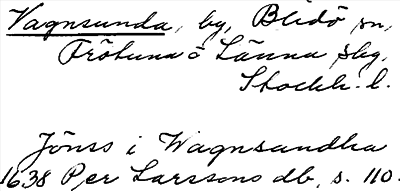 Vagnsunda, by, Blidö sn,
Frötuna o Länna skg,
Stockh. l.
Jöns i Wagnsundha
1638 Per Larssons db, s. 110.